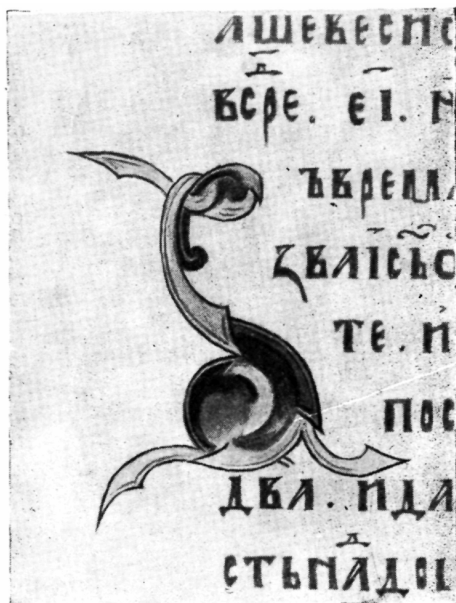 ашевесис
всрⷣе. е҃і. н
ъврем
ꙁваі҃сьо
те. и
пос
два. ида
стьнаⷣ до